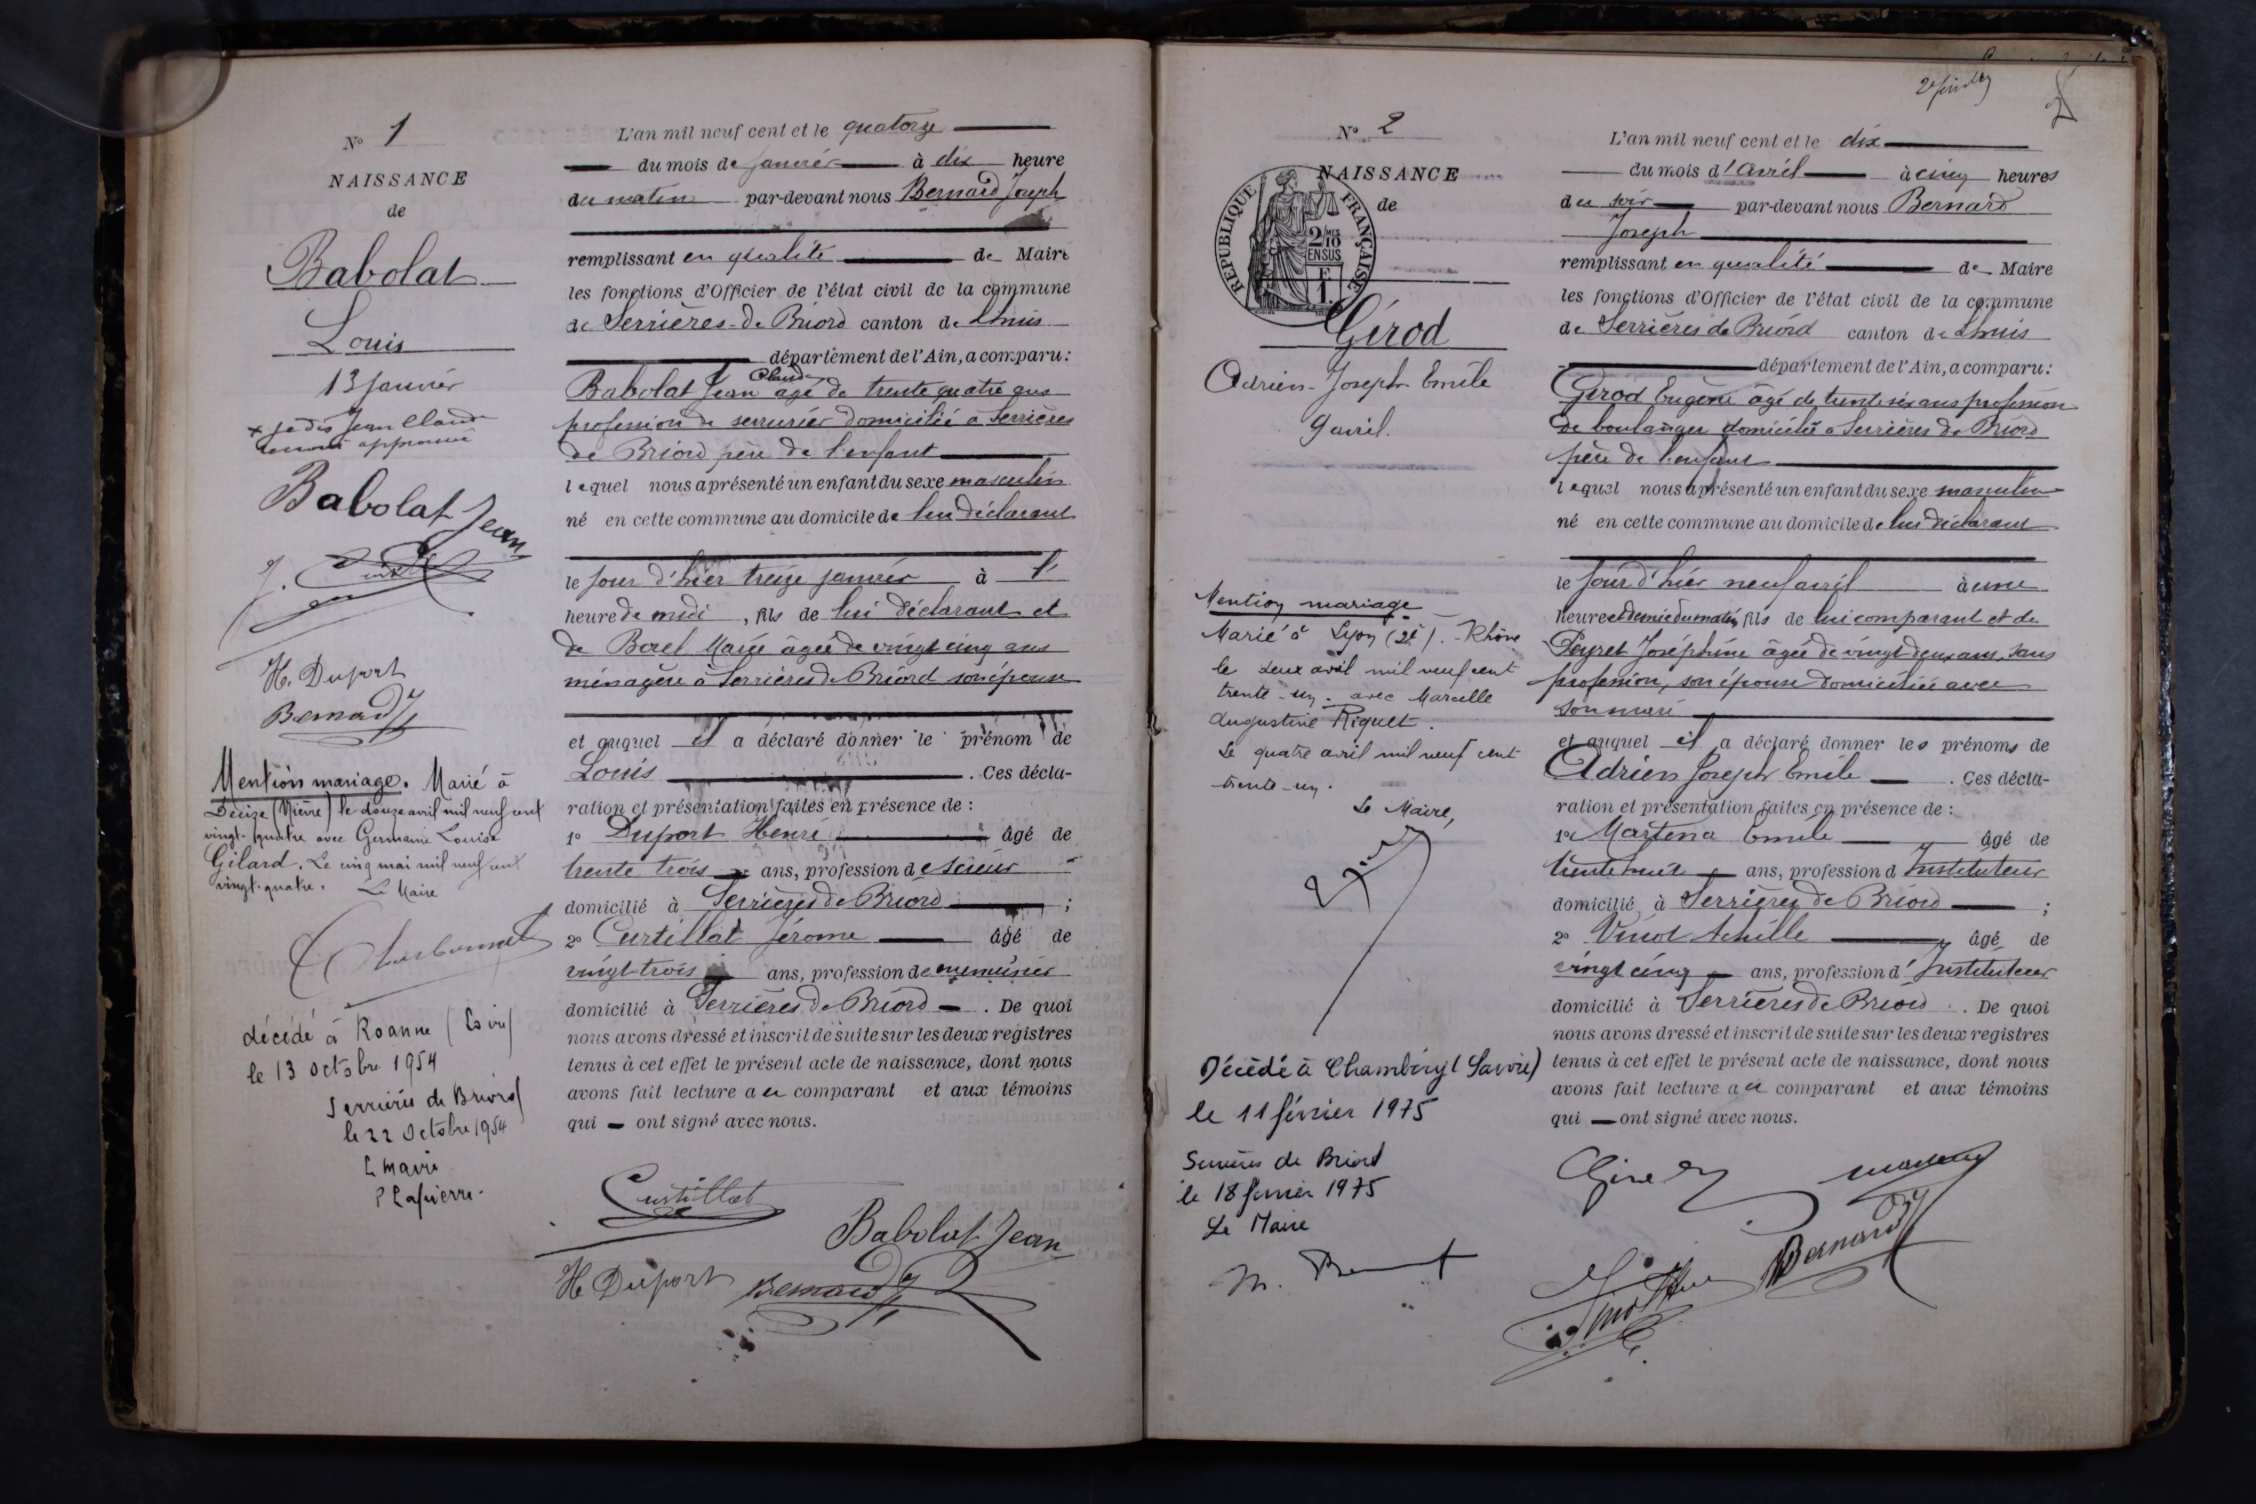 No 1
NAISSANCE
de
Babolat
Louis
13 Janvier
+ je dis Jean Claude
renvoi approuvé
Babolat Jean
H. Duport
Bernard J
Mention mariage. Marié à
Decize (Nièvre) le douze avril mil neuf cent
vingt-quatre avec Germaine Louise
Gilard. Le cinq mai mil neuf cent
vingt-quatre. Le Maire
décédé à Roanne (Loire)
le 13 octobre 1954
Serrières de Briord
le 22 Octobre 1954
L Maire
P Lapierre
L'an mil neuf cent et le quatorze
du mois de Janvier à dix heure
du matin par-devant nous Bernard Joseph
remplissant en qualité de Maire
les fonctions d'Officier de l'état civil de la commune
de Serrières-de Briord canton de Lhuis
département de l'Ain, a comparu:
Babolat Jean Claude âgé de trente quatre ans
profession de serrurier domicilié à Serrières
de Briord père de l'enfant
lequel nous a présenté un enfant du sexe masculin
né en cette commune au domicile de lui déclarant
le Jour d'hier treize janvier à 1
heure de midi, fils de lui déclarant et
de Borel Marie âgée de vingt cinq ans
ménagère à Serrières de Briord son épouse
et auquel il a déclaré donner le prénom de
Louis. Ces décla-
ration et présentation faites en présence de :
1o Duport Henri âgé de
trente trois ans, profession de scieur
domicilié à Serrières de Briord ;
2o Curtillat Jérome âgé de
vingt-trois ans, profession de menuisier
domicilié à Serrières de Briord. De quoi
nous avons dressé et inscrit de suite sur les deux registres
tenus à cet effet le présent acte de naissance, dont nous
avons fait lecture au comparant et aux témoins
qui ont signé avec nous.
Curtillat
Babolat Jean
H Duport Bernard J
No 2
NAISSANCE
de
REPUBLIQUE FRANÇAISE
2/10 EN SUS
F
1
Girod
Adrien-Joseph Emile
9 avril.
Mention mariage
Marié à Lyon (2e). Rhône
le deux avril mil neuf cent
trente-un. avec Marcelle
Augustine Riquet.
Le quatre avril mil neuf cent
trente-un.
Le Maire,
Décédé à Chambéry (Savoie)
le 11 février 1975
Serrières de Briord
le 18 février 1975
Le Maire
L'an mil neuf cent et le dix
du mois d'Avril à cinq heures
du soir par-devant nous Bernard
Joseph
remplissant en qualité de Maire
les fonctions d'Officier de l'état civil de la commune
de Serrières de Briord canton de Lhuis
département de l'Ain, a comparu:
Girod Eugène âgé de trente six ans profession
de boulanger domicilié à Serrières de Briord
père de l'enfant
lequel nous a présenté un enfant du sexe masculin
né en cette commune au domicile de lui déclarant
le Jour d'hier neuf avril à une
heure et demie du matin, fils de lui comparant et de
Peyret Joséphine âgée de vingt deux ans, sans
profession, son épouse domiciliée avec
son mari
et auquel il a déclaré donner les prénoms de
Adrien Joseph Emile. Ces décla-
ration et présentation faites en présence de :
1o Martena Emile âgé de
trente huit ans, profession d'Instituteur
domicilié à Serrières de Briord ;
2o Vinot Achille âgé de
vingt cinq ans, profession d'Instituteur
domicilié à Serrières de Briord. De quoi
nous avons dressé et inscrit de suite sur les deux registres
tenus à cet effet le présent acte de naissance, dont nous
avons fait lecture au comparant et aux témoins
qui ont signé avec nous.
Bernard J